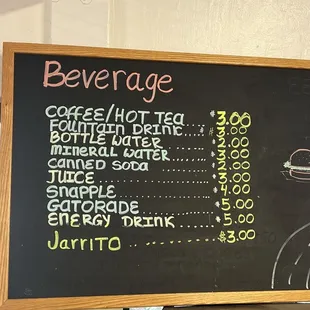 Beverage
COFFEE/HOT TEA $3.00
FOUNTAIN DRINK 3.00
BOTTLE WATER 2.00
MINERAL WATER 3.00
CANNED SODA 2.00
JUICE 3.00
SNAPPLE 4.00
GATORADE 5.00
ENERGY DRINK 5.00
JARRITO $3.00